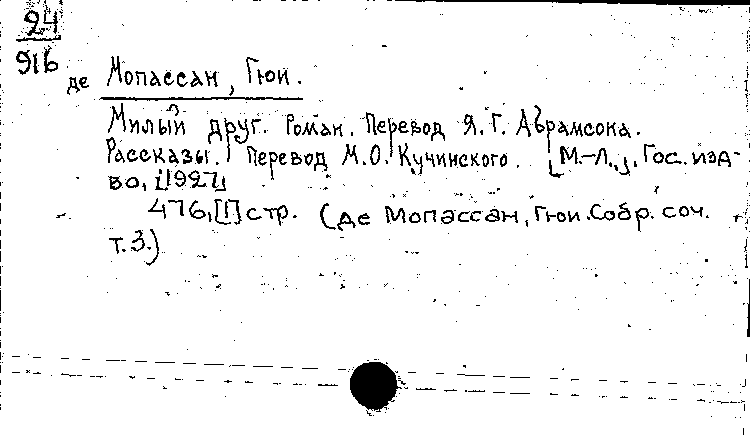 24
916
де Мопассан, Гюи.
Милый друг. Роман. Перевод Я. Г. Абрамсона.
Рассказы. Перевод М.О. Кучинского. [М.-Л.,], Гос. изд-
во, [1927]
476,[1] стр. (де Мопассан, Гюи. Собр. соч.
т.3.)